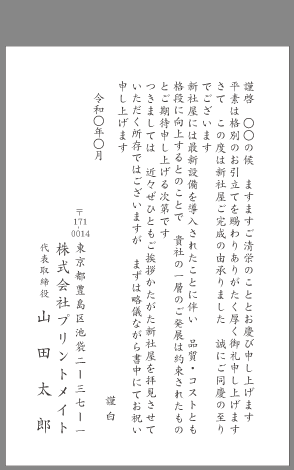 謹啓　〇〇の候　ますますご清栄のこととお慶び申し上げます
平素は格別のお引立てを賜わりありがたく厚く御礼申し上げます
さて　この度は新社屋ご完成の由承りました　誠にご同慶の至り
でございます
新社屋には最新設備を導入されたことに伴い　品質・コストとも
格段に向上するとのことで　貴社の一層のご発展は約束されたもの
とご期待申し上げる次第です
つきましては　近々ぜひともご挨拶かたがた新社屋を拝見させて
いただく所存ではございますが　まずは略儀ながら書中にてお祝い
申し上げます
謹白
令和〇年〇月
〒171-0014
東京都豊島区池袋二ー三七ー一
株式会社プリントメイト
代表取締役　山田太郎